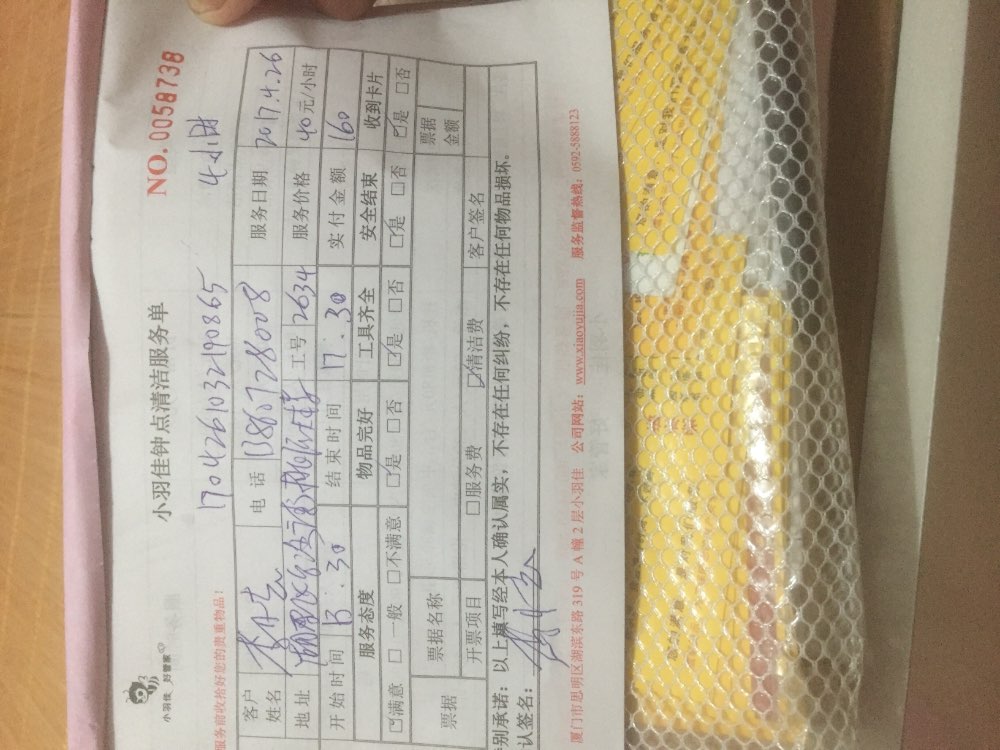 小羽佳 好管家
小羽佳钟点清洁服务单
NO.0058738
服务前收拾好您的贵重物品！
1704261032190865 4小时
客户姓名 电话 服务日期 2017.4.26
地址 工号 2634 服务价格 40元/小时
开始时间 13.30 结束时间 17.30 实付金额 160
服务态度 物品完好 工具齐全 安全结束 收到卡片
☑满意 □一般 □不满意 ☑是 □否 ☑是 □否 ☑是 □否 ☑是 □否
票据 票据名称 票据金额
开票项目 □服务费 ☑清洁费 客户签名
别承诺：以上填写经本人确认属实，不存在任何纠纷，不存在任何物品损坏。
认签名：
厦门市思明区湖滨东路319号A幢2层小羽佳 公司网站：www.xiaoyujia.com 服务监督热线：0592-5888123